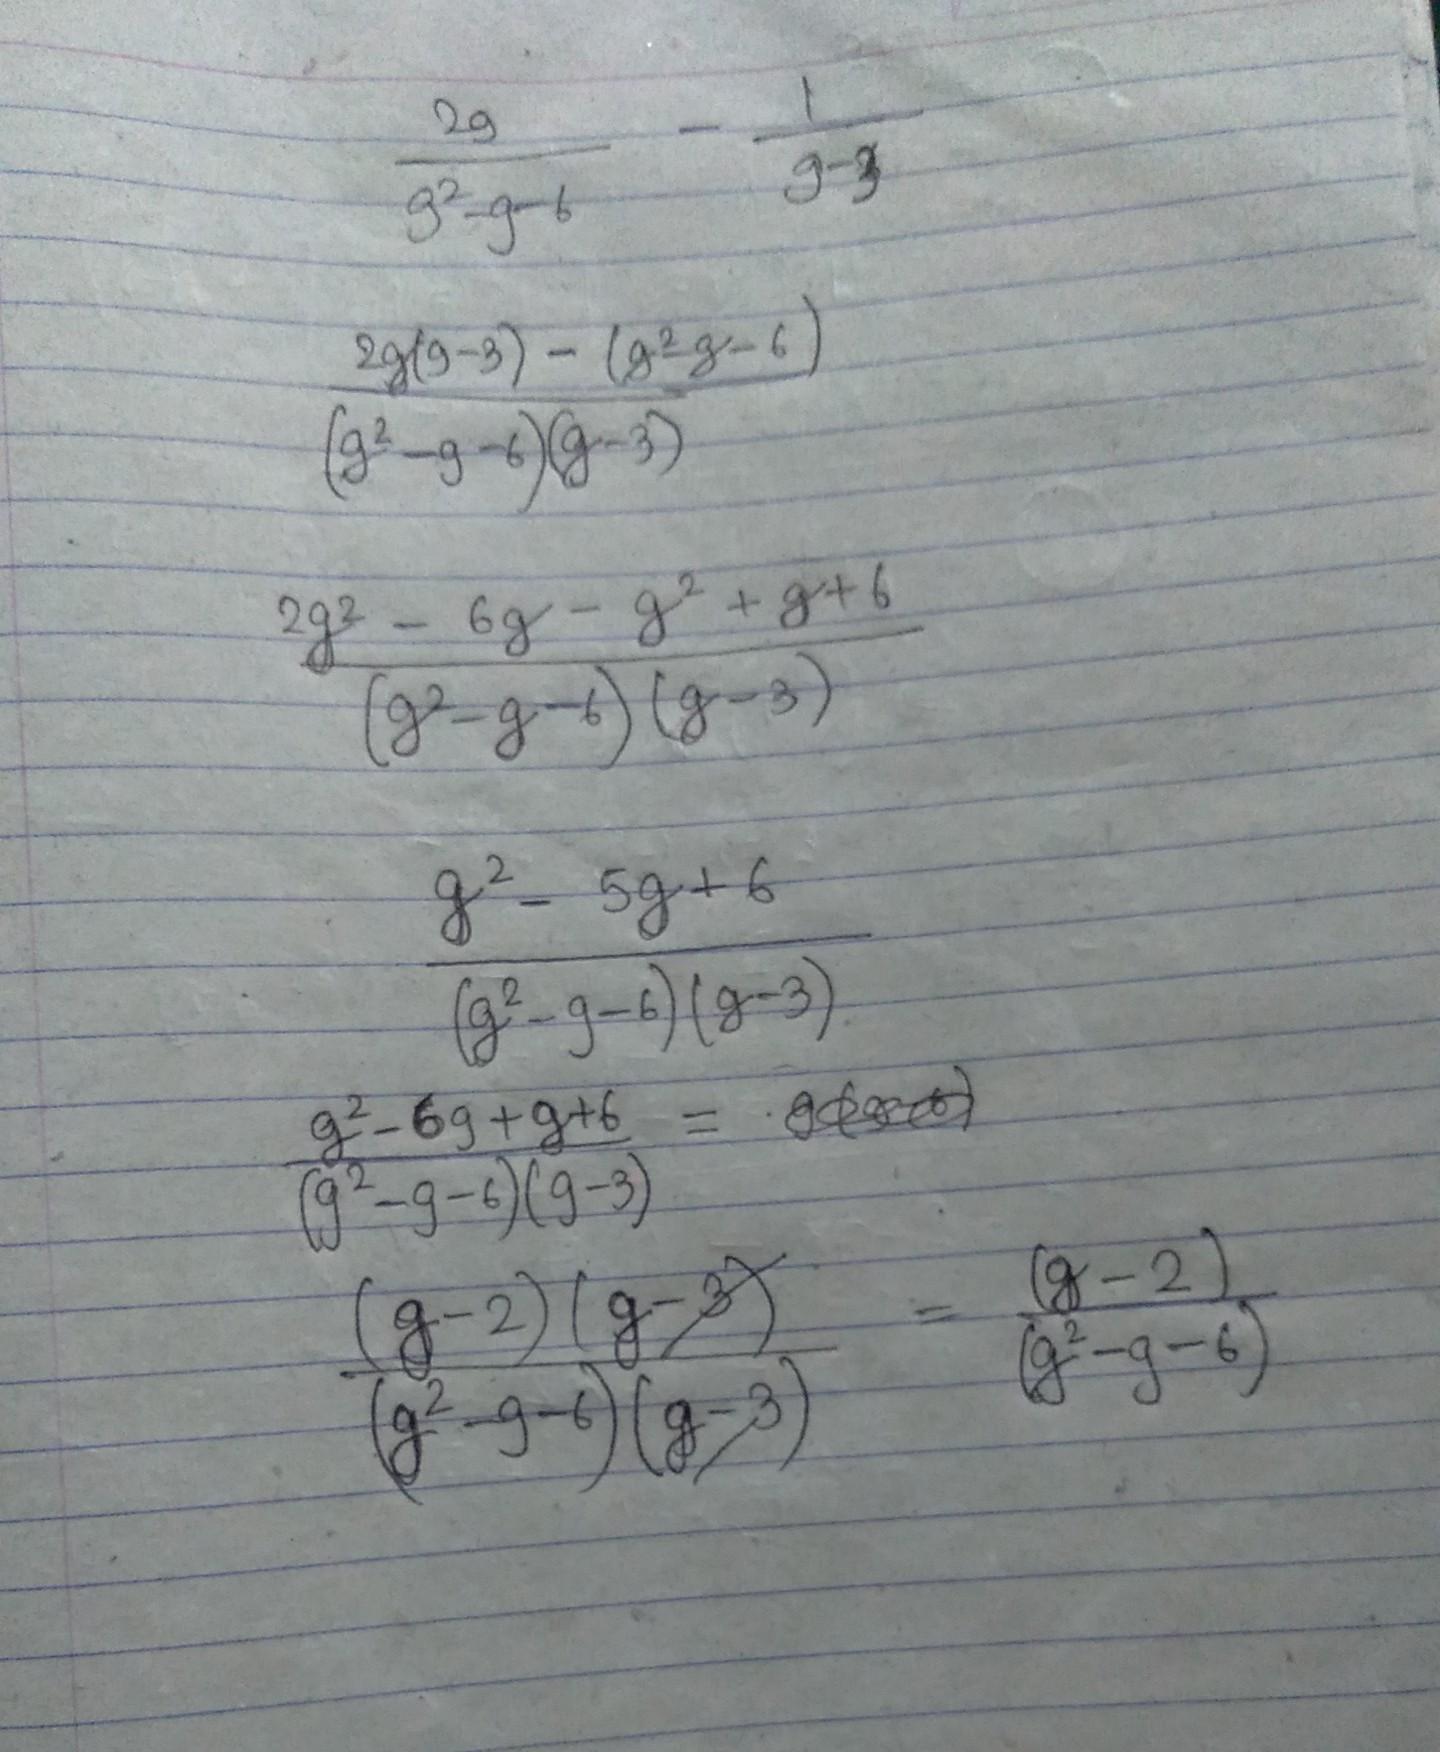 2g/(g²-g-6) - 1/(g-3)
(2g(g-3) - (g²-g-6))/((g²-g-6)(g-3))
(2g² - 6g - g² + g + 6)/((g²-g-6)(g-3))
(g² - 5g + 6)/((g²-g-6)(g-3))
(g²-6g+g+6)/((g²-g-6)(g-3)) =
((g-2)(g-3))/((g²-g-6)(g-3)) = (g-2)/(g²-g-6)